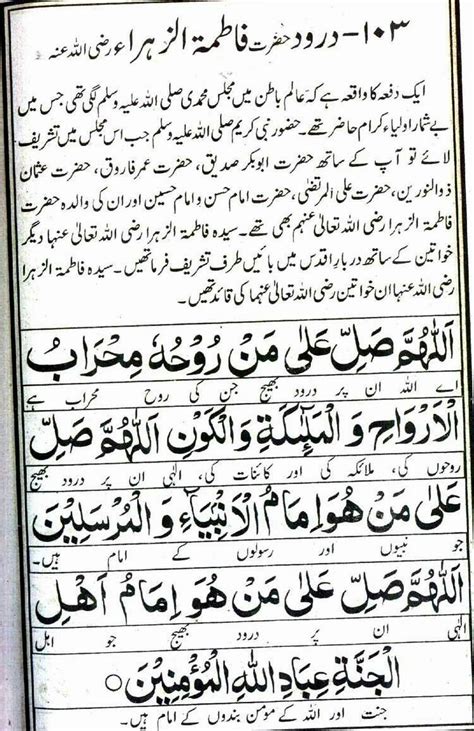 ۱۰۳-درود حضرت فاطمۃ الزہراء رضی اللہ عنہ
ایک دفعہ کا واقعہ ہے کہ عالم باطن میں مجلس محمدی صلی اللہ علیہ وسلم لگی تھی جس میں
بے شمار اولیاء کرام حاضر تھے۔ حضور نبی کریم صلی اللہ علیہ وسلم جب اس مجلس میں تشریف
لائے تو آپ کے ساتھ حضرت ابوبکر صدیق، حضرت عمر فاروق، حضرت عثمان
ذوالنورین، حضرت علی المرتضٰی، حضرت امام حسن و امام حسین اور ان کی والدہ حضرت
فاطمۃ الزہرا رضی اللہ تعالیٰ عنہم بھی تھے۔ سیدہ فاطمۃ الزہرا رضی اللہ تعالیٰ عنہا دیگر
خواتین کے ساتھ دربار اقدس میں بائیں طرف تشریف فرما تھیں۔ سیدہ فاطمۃ الزہرا
رضی اللہ عنہا ان خواتین رضی اللہ تعالیٰ عنہما کی قائد تھیں۔
اَللّٰهُمَّ صَلِّ عَلٰى مَنْ رُوْحُهٗ مِحْرَابُ
اے اللہ ان پر درود بھیج جن کی روح محراب ہے
الْاَرْوَاحِ وَ الْمَلٰٓئِكَةِ وَ الْكَوْنِ اَللّٰهُمَّ صَلِّ
روحوں کی، ملائکہ کی اور کائنات کی، الٰہی ان پر درود بھیج
عَلٰى مَنْ هُوَ اِمَامُ الْاَنْبِيَآءِ وَ الْمُرْسَلِيْنَ
جو نبیوں اور رسولوں کے امام ہیں۔
اَللّٰهُمَّ صَلِّ عَلٰى مَنْ هُوَ اِمَامُ اَهْلِ
الٰہی ان پر درود بھیج جو اہل
الْجَنَّةِ عِبَادِ اللّٰهِ الْمُؤْمِنِيْنَ ○
جنت اور اللہ کے مومن بندوں کے امام ہیں۔